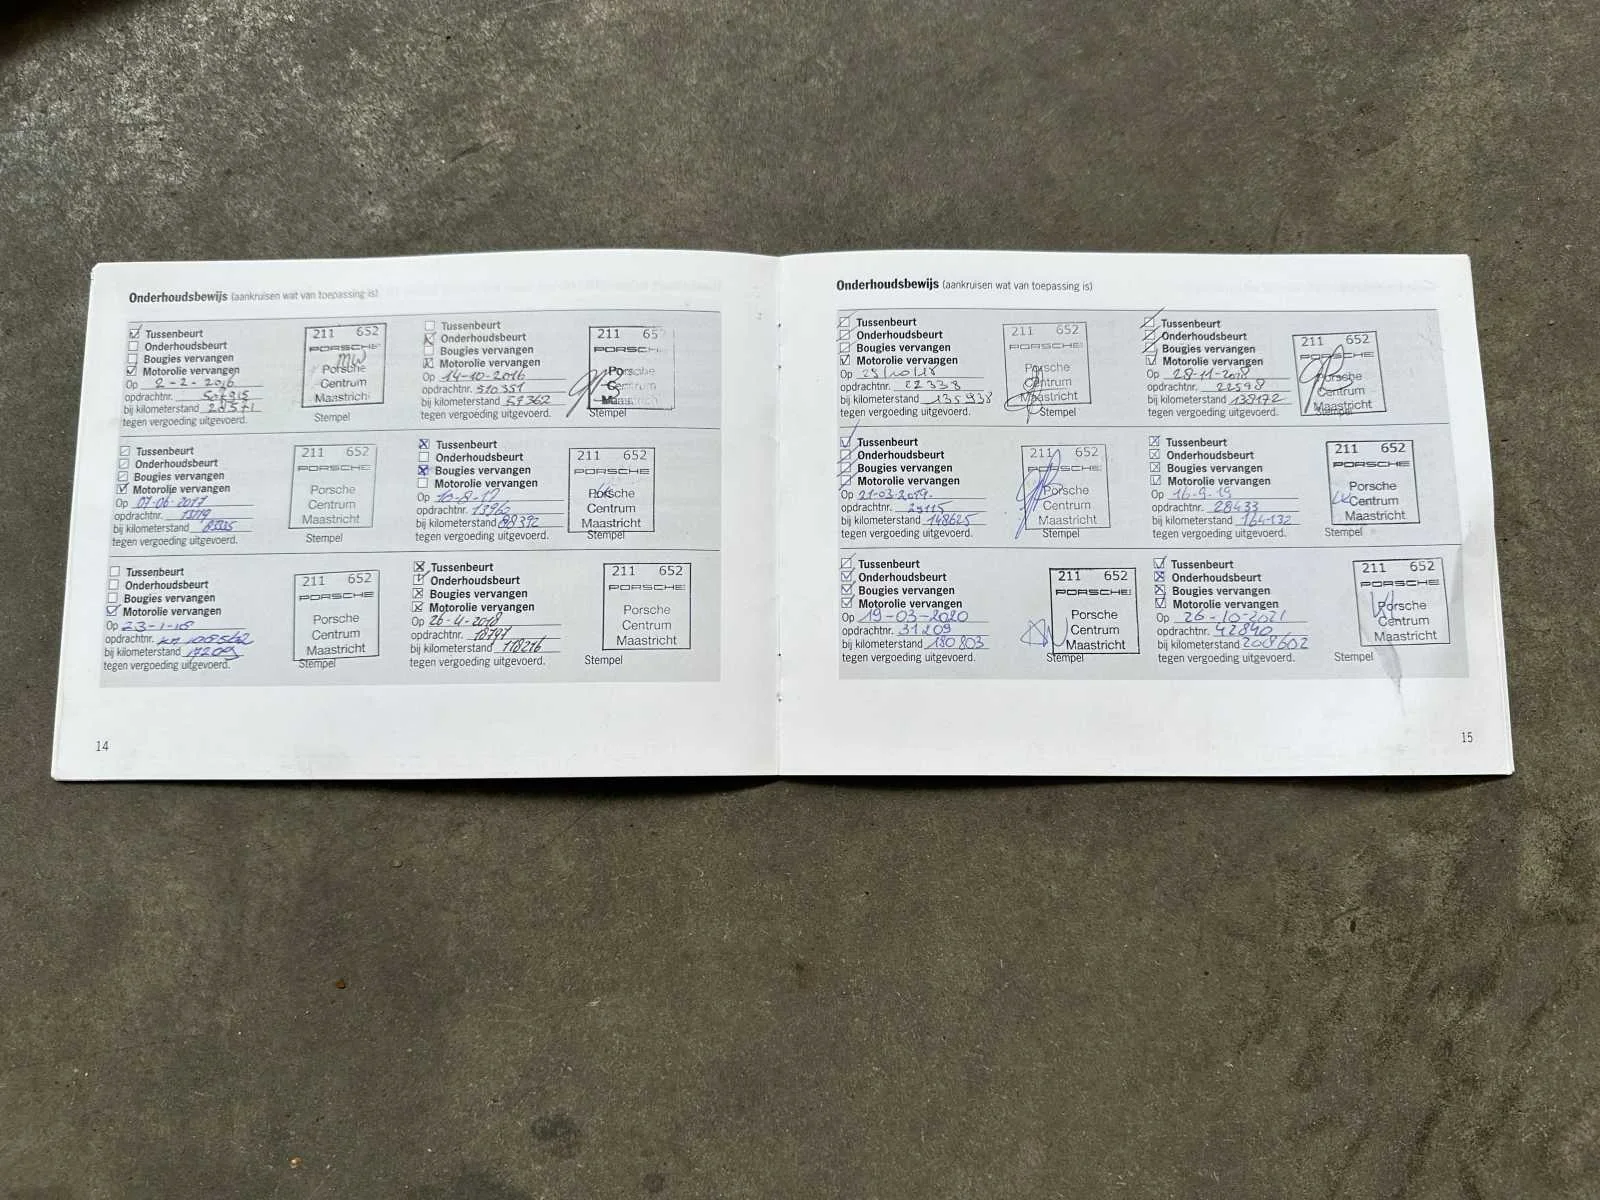 Onderhoudsbewijs (aankruisen wat van toepassing is)
Tussenbeurt
Onderhoudsbeurt
Bougies vervangen
Motorolie vervangen
Op 2-2-2016
opdrachtnr.
bij kilometerstand 28571
tegen vergoeding uitgevoerd.
211 652
PORSCHE
MW
Porsche
Centrum
Maastricht
Stempel
Tussenbeurt
Onderhoudsbeurt
Bougies vervangen
Motorolie vervangen
Op 14-10-2016
opdrachtnr. 510351
bij kilometerstand 57362
tegen vergoeding uitgevoerd.
211 65
PORSCHE
Porsche
Centrum
Maastricht
Stempel
Tussenbeurt
Onderhoudsbeurt
Bougies vervangen
Motorolie vervangen
Op 07-06-2017
opdrachtnr.
bij kilometerstand
tegen vergoeding uitgevoerd.
211 652
PORSCHE
Porsche
Centrum
Maastricht
Stempel
Tussenbeurt
Onderhoudsbeurt
Bougies vervangen
Motorolie vervangen
Op 10-8-17
opdrachtnr. 13962
bij kilometerstand 88392
tegen vergoeding uitgevoerd.
211 652
PORSCHE
Porsche
Centrum
Maastricht
Stempel
Tussenbeurt
Onderhoudsbeurt
Bougies vervangen
Motorolie vervangen
Op 23-1-18
opdrachtnr. km 108562
bij kilometerstand 17209
tegen vergoeding uitgevoerd.
211 652
PORSCHE
Porsche
Centrum
Maastricht
Stempel
Tussenbeurt
Onderhoudsbeurt
Bougies vervangen
Motorolie vervangen
Op 26-4-2018
opdrachtnr. 18797
bij kilometerstand 118276
tegen vergoeding uitgevoerd.
211 652
PORSCHE
Porsche
Centrum
Maastricht
Stempel
14
Onderhoudsbewijs (aankruisen wat van toepassing is)
Tussenbeurt
Onderhoudsbeurt
Bougies vervangen
Motorolie vervangen
Op
opdrachtnr. 22338
bij kilometerstand 135938
tegen vergoeding uitgevoerd.
211 652
PORSCHE
Porsche
Centrum
Maastricht
Stempel
Tussenbeurt
Onderhoudsbeurt
Bougies vervangen
Motorolie vervangen
Op 28-11-2018
opdrachtnr. 22598
bij kilometerstand 138172
tegen vergoeding uitgevoerd.
211 652
PORSCHE
Porsche
Centrum
Maastricht
Stempel
Tussenbeurt
Onderhoudsbeurt
Bougies vervangen
Motorolie vervangen
Op 21-03-2019.
opdrachtnr. 25115
bij kilometerstand 148625
tegen vergoeding uitgevoerd.
211 652
PORSCHE
Porsche
Centrum
Maastricht
Stempel
Tussenbeurt
Onderhoudsbeurt
Bougies vervangen
Motorolie vervangen
Op 16-9-19
opdrachtnr. 28433
bij kilometerstand 164132
tegen vergoeding uitgevoerd.
211 652
PORSCHE
Porsche
Centrum
Maastricht
Stempel
Tussenbeurt
Onderhoudsbeurt
Bougies vervangen
Motorolie vervangen
Op 19-03-2020
opdrachtnr. 31209
bij kilometerstand 180803
tegen vergoeding uitgevoerd.
211 652
PORSCHE
Porsche
Centrum
Maastricht
Stempel
Tussenbeurt
Onderhoudsbeurt
Bougies vervangen
Motorolie vervangen
Op 26-10-2021
opdrachtnr. 42840
bij kilometerstand 208602
tegen vergoeding uitgevoerd.
211 652
PORSCHE
Porsche
Centrum
Maastricht
Stempel
15